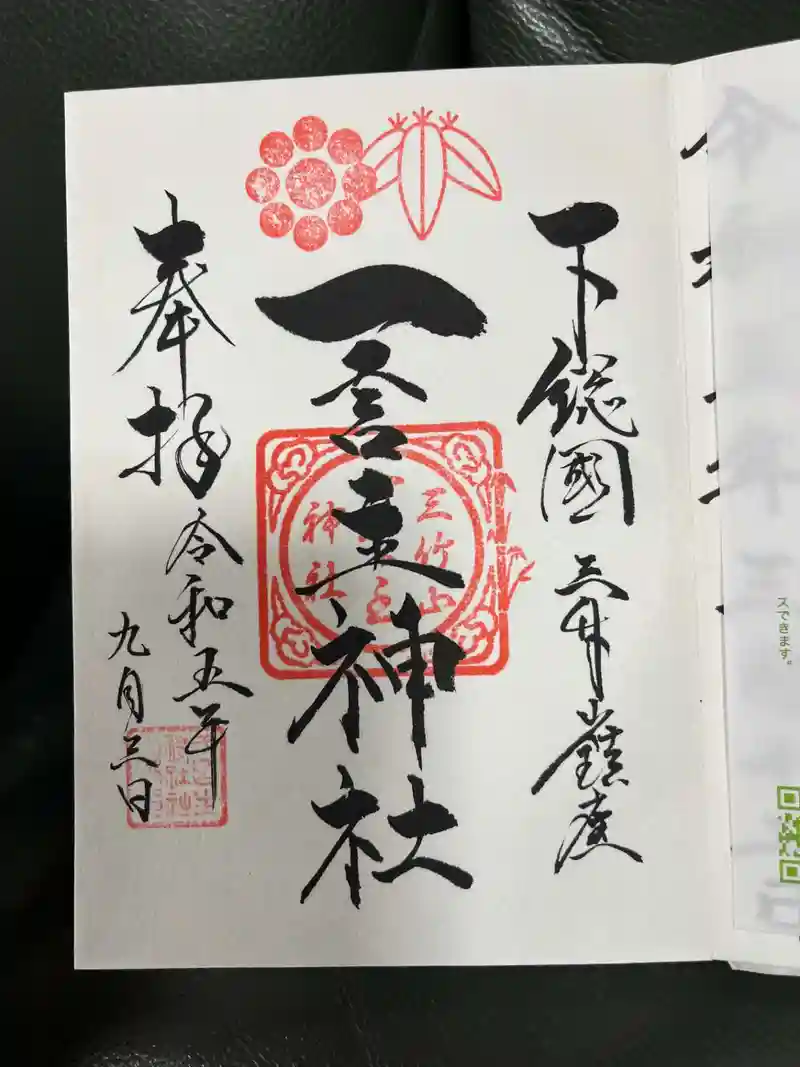 下総國 三竹山鎮座
一言主神社
三竹山
神社
奉拝
令和五年
九月三日
スできます。